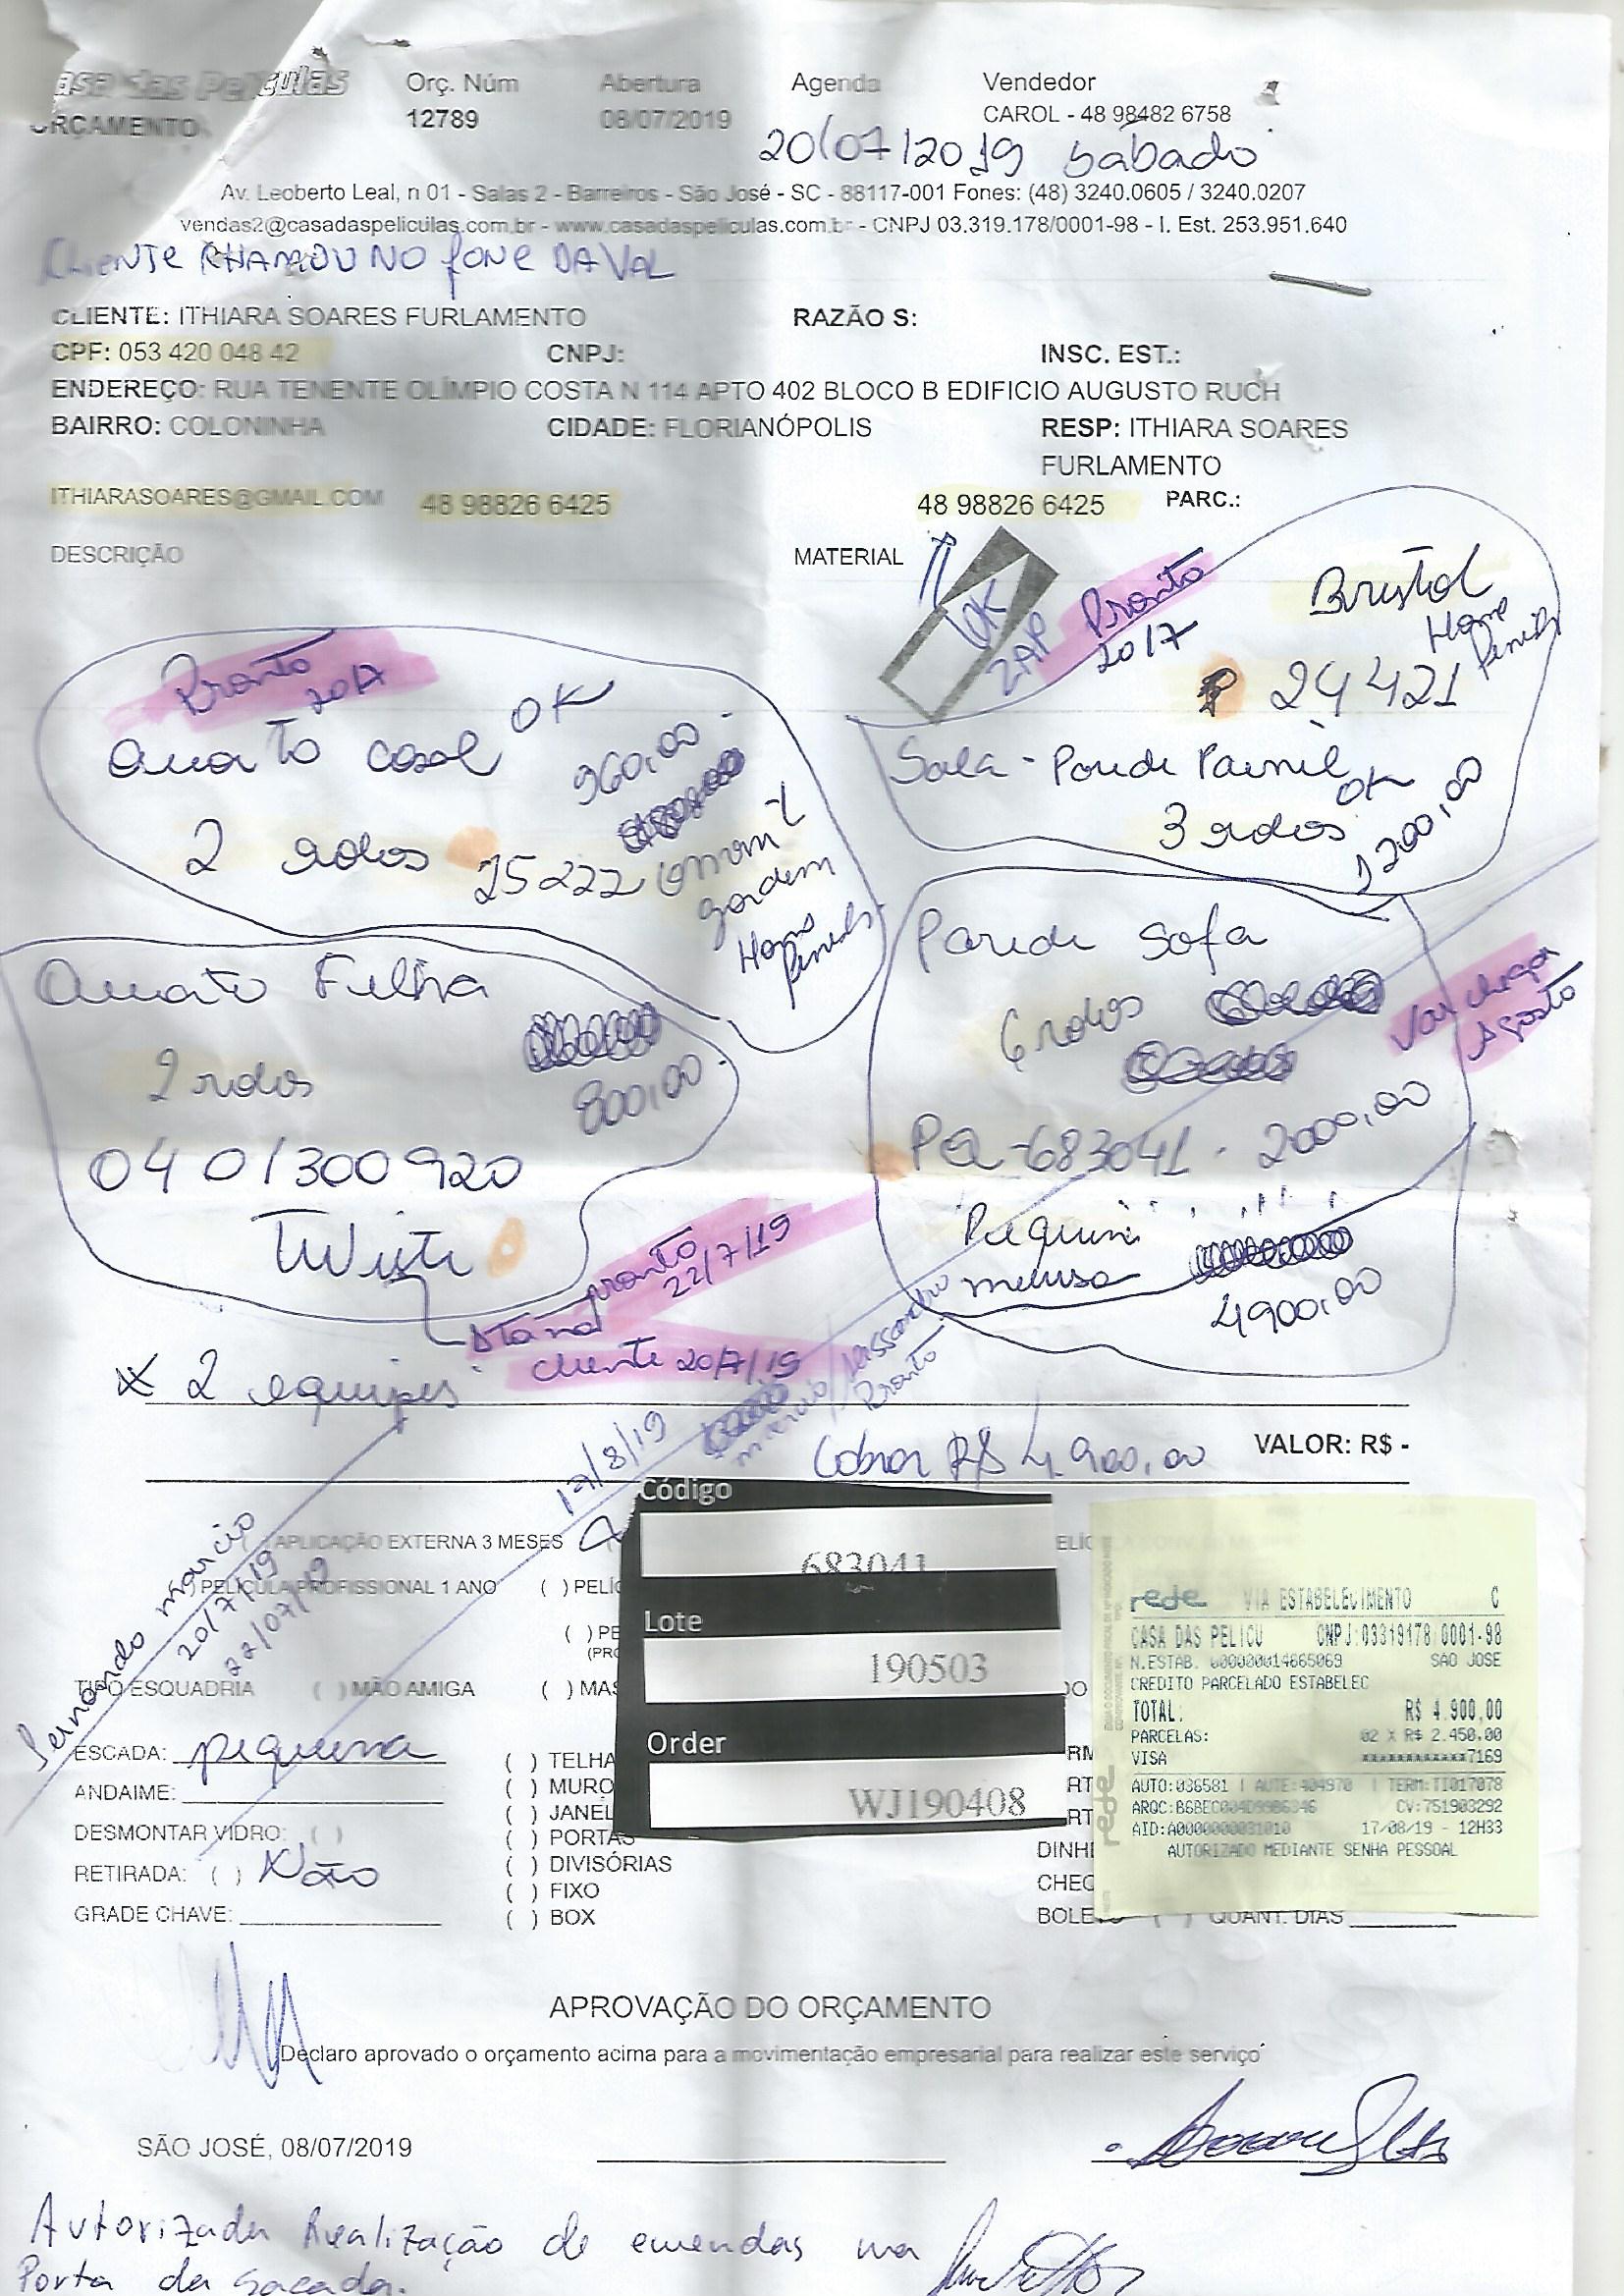 asa das Películas
Orç. Núm
Abertura
Agenda
Vendedor
ORÇAMENTO
12789
08/07/2019
CAROL - 48 98482 6758
20/07/2019 Sábado
Av. Leoberto Leal, n 01 - Salas 2 - Barreiros - São José - SC - 88117-001 Fones: (48) 3240.0605 / 3240.0207
vendas2@casadaspeliculas.com.br - www.casadaspeliculas.com.br - CNPJ 03.319.178/0001-98 - I. Est. 253.951.640
CLIENTE CHAMOU NO fone DA VAL
CLIENTE: ITHIARA SOARES FURLAMENTO
RAZÃO S:
CPF: 053 420 048 42
CNPJ:
INSC. EST.:
ENDEREÇO: RUA TENENTE OLÍMPIO COSTA N 114 APTO 402 BLOCO B EDIFICIO AUGUSTO RUCH
BAIRRO: COLONINHA
CIDADE: FLORIANÓPOLIS
RESP: ITHIARA SOARES
FURLAMENTO
ITHIARASOARES@GMAIL.COM
48 98826 6425
48 98826 6425
PARC.:
DESCRIÇÃO
MATERIAL
OK
ZAP
Pronto
20/7
Bristol
Home
24421
Sala - Parede Painel
OK
3 rolos
1200,00
Pronto
20/7
Quarto casal OK
960,00
2 rolos
25222
garden
Home
Quarto Filha
2 rolos
800,00
0401300920
Twist
Parede Sofa
6 rolos
Vai chegar
Agosto
PA-683041 - 2000,00
4900,00
pronto
22/7/19
Está na
cliente 20/7/19
* 2 equipes
17/8/19
Pronto
Cobrar R$ 4.900,00
VALOR: R$ -
Fernando marcio
20/7/19
22/07/19
APLICAÇÃO EXTERNA 3 MESES
PELÍCULA PROFISSIONAL 1 ANO
( ) PELÍC
( ) PE
(PRO
TIPO ESQUADRIA
( ) MÃO AMIGA
( ) MAS
ESCADA: pequena
ANDAIME:
DESMONTAR VIDRO: ( )
RETIRADA: ( ) Não
GRADE CHAVE:
( ) TELHA
( ) MURO
( ) JANEL
( ) PORTAS
( ) DIVISÓRIAS
( ) FIXO
( ) BOX
Código
683041
Lote
190503
Order
WJ190408
DINHE
CHEQ
BOLE
QUANT. DIAS
rede VIA ESTABELECIMENTO C
CASA DAS PELICU CNPJ:03319178/0001-98
N.ESTAB. 000000014865069 SAO JOSE
CREDITO PARCELADO ESTABELEC
TOTAL: R$ 4.900,00
PARCELAS: 02 X R$ 2.450,00
VISA ************7169
AUTO:036581 | AUTE:404970 | TERM:TI017078
CV:751903292
AID:A0000000031010 17/08/19 - 12H33
AUTORIZADO MEDIANTE SENHA PESSOAL
rede
APROVAÇÃO DO ORÇAMENTO
Declaro aprovado o orçamento acima para a movimentação empresarial para realizar este serviço
SÃO JOSÉ, 08/07/2019
Autorizada Realização de emendas na
Porta da Sacada.